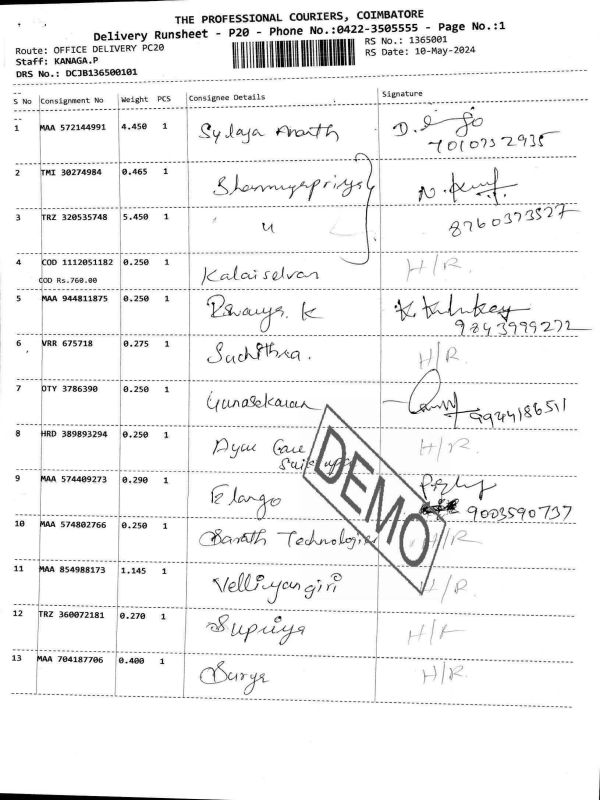 THE PROFESSIONAL COURIERS, COIMBATORE
Delivery Runsheet - P20 - Phone No.:0422-3505555 - Page No.:1
Route: OFFICE DELIVERY PC20
RS No.: 1365001
Staff: KANAGA.P
RS Date: 10-May-2024
DRS No.: DCJB136500101
S No Consignment No Weight PCS Consignee Details Signature
1 MAA 572144991 4.450 1 Sylaja
7010732935
2 TMI 30274984 0.465 1
3 TRZ 320535748 5.450 1 "
8760373527
4 COD 1112051182 0.250 1 Kalaiselvan H/R.
COD Rs.760.00
5 MAA 944811875 0.250 1 K
9843999272
6 VRR 675718 0.275 1 Suchithra. H/R.
7 OTY 3786390 0.250 1 Gunasekaran 9944186511
8 HRD 389893294 0.250 1 Care H/R.
9 MAA 574409273 0.290 1 Elango 9003590737
10 MAA 574802766 0.250 1 Sarath Technologies H/R
11 MAA 854988173 1.145 1 Velliyangiri H/R.
12 TRZ 360072181 0.270 1 Supriya H/R
13 MAA 704187706 0.400 1 Surya H/R.
DEMO